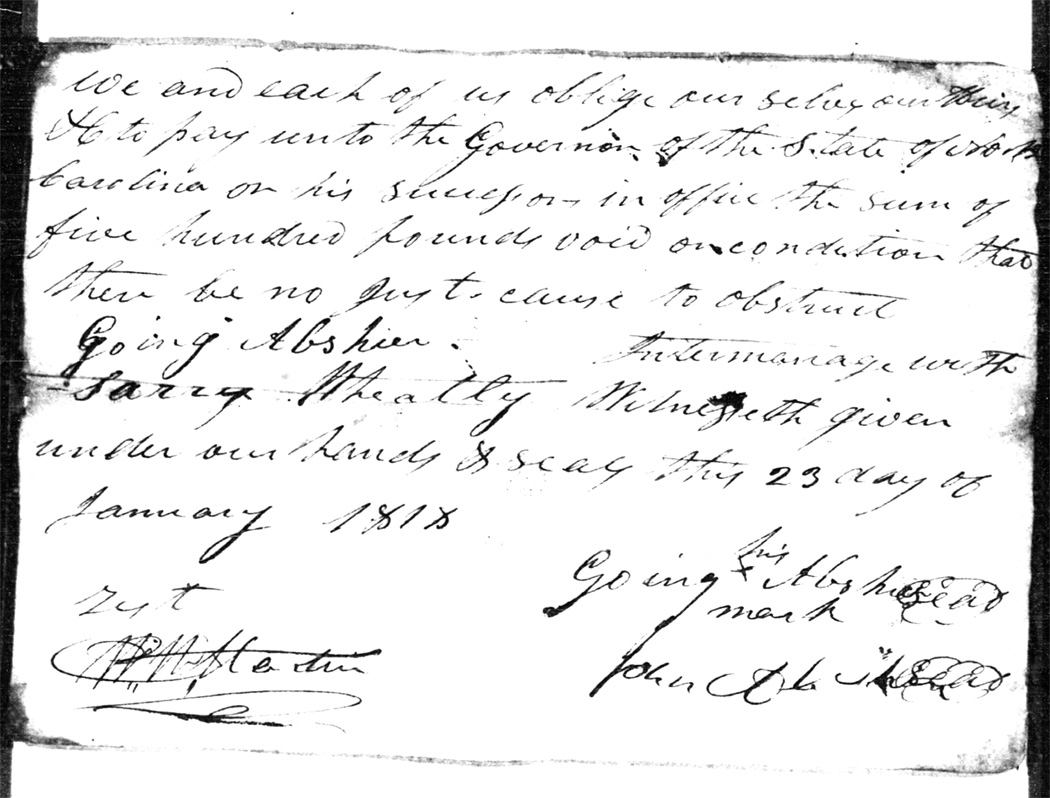 We and each of us oblige our selvs our Heirs
&c to pay unto the Governor of the State of North
Carolina or his Successor in office the sum of
five hundred pounds void on condition that
their be no just cause to obstruct
Going Abshier. Intermariage with
Sarry Wheatly Witnesseth given
under our hands & seals this 23 day of
January 1818
Going his x Abshier Seal
mark
Test
Martin
John Seal